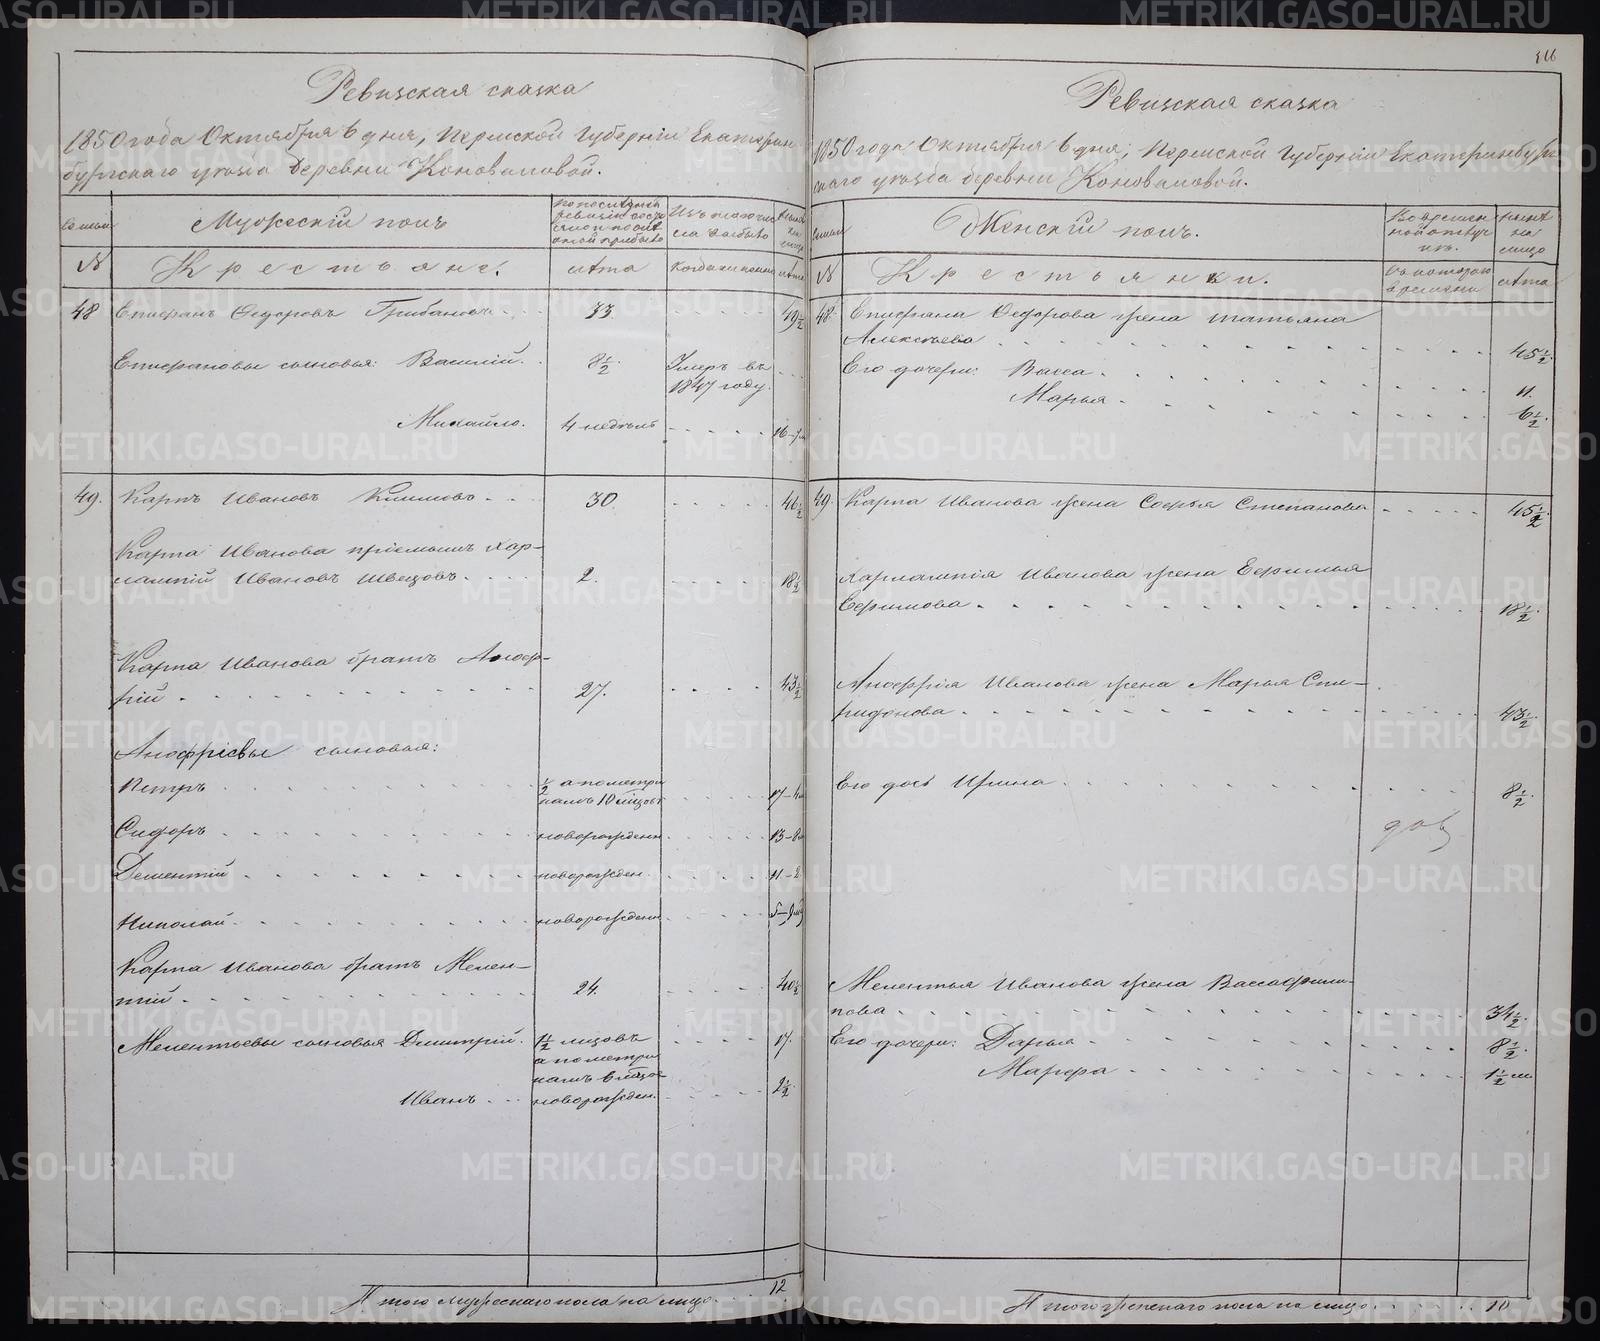 Ревизская сказка
1850 года Октября 6 дня, Пермской Губерніи Екатерин-
бургскаго уѣзда Деревни Коноваловой.
Семьи
Мужескій полъ
По последней ревизіи состояло и после оной прибыло
Изъ того числа выбыло
Ныне на лицо
№
Крестьяне.
Лѣта
Когда именно
Лѣта
48 Епифанъ Федоровъ Грибановъ 33 49½
Епифановы сыновья: Василій. 8½ Умеръ въ
1847 году.
Михайло. 4 недѣль 16-
49. Карпъ Ивановъ Климовъ 30 46½
Карпа Иванова пріемышъ Хар-
лампій Ивановъ Швецовъ. 2. 18½
Карпа Иванова братъ Аноф-
рій 27. 43½
Анофріевы сыновья:
Петръ ½ а по метри
камъ 10 мѣцовъ 17-4
Сидоръ новорожден. 13-8
Дементій новорожден. 11-2
Николай новорожден. 5-9
Карпа Иванова братъ Мелен-
тій 24. 40½
Мелентьевы сыновья Дмитрій. 1½ мцовъ
а по метри
камъ 6 мцов 17.
Иванъ новорожден. 2½
Итого мужескаго пола на лицо 12
316
Ревизская сказка
1850 года Октября 6 дня, Пермской Губерніи Екатеринбург-
скаго уѣзда деревни Коноваловой.
Семьи
Женскій полъ.
Во временной отлучкѣ.
Ныне на лицо
№
Крестьянки.
Съ котораго времени
Лѣта
48. Епифана Федорова жена Татьяна
Алексѣева 45½.
Его дочери: Васса 11.
Марья 6½.
49. Карпа Иванова жена Софья Степанова 45½
Харлампія Иванова жена Ефимья
Ефимова 18½.
Анофрія Иванова жена Марья Спи-
ридонова 43½.
Его дочь Ирина 8½.
Мелентья Иванова жена Васса Фили-
пова 34½.
Его дочери: Дарья 8½.
Марфа 1½ м.
Итого женскаго пола на лицо 10
METRIKI.GASO-URAL.RU